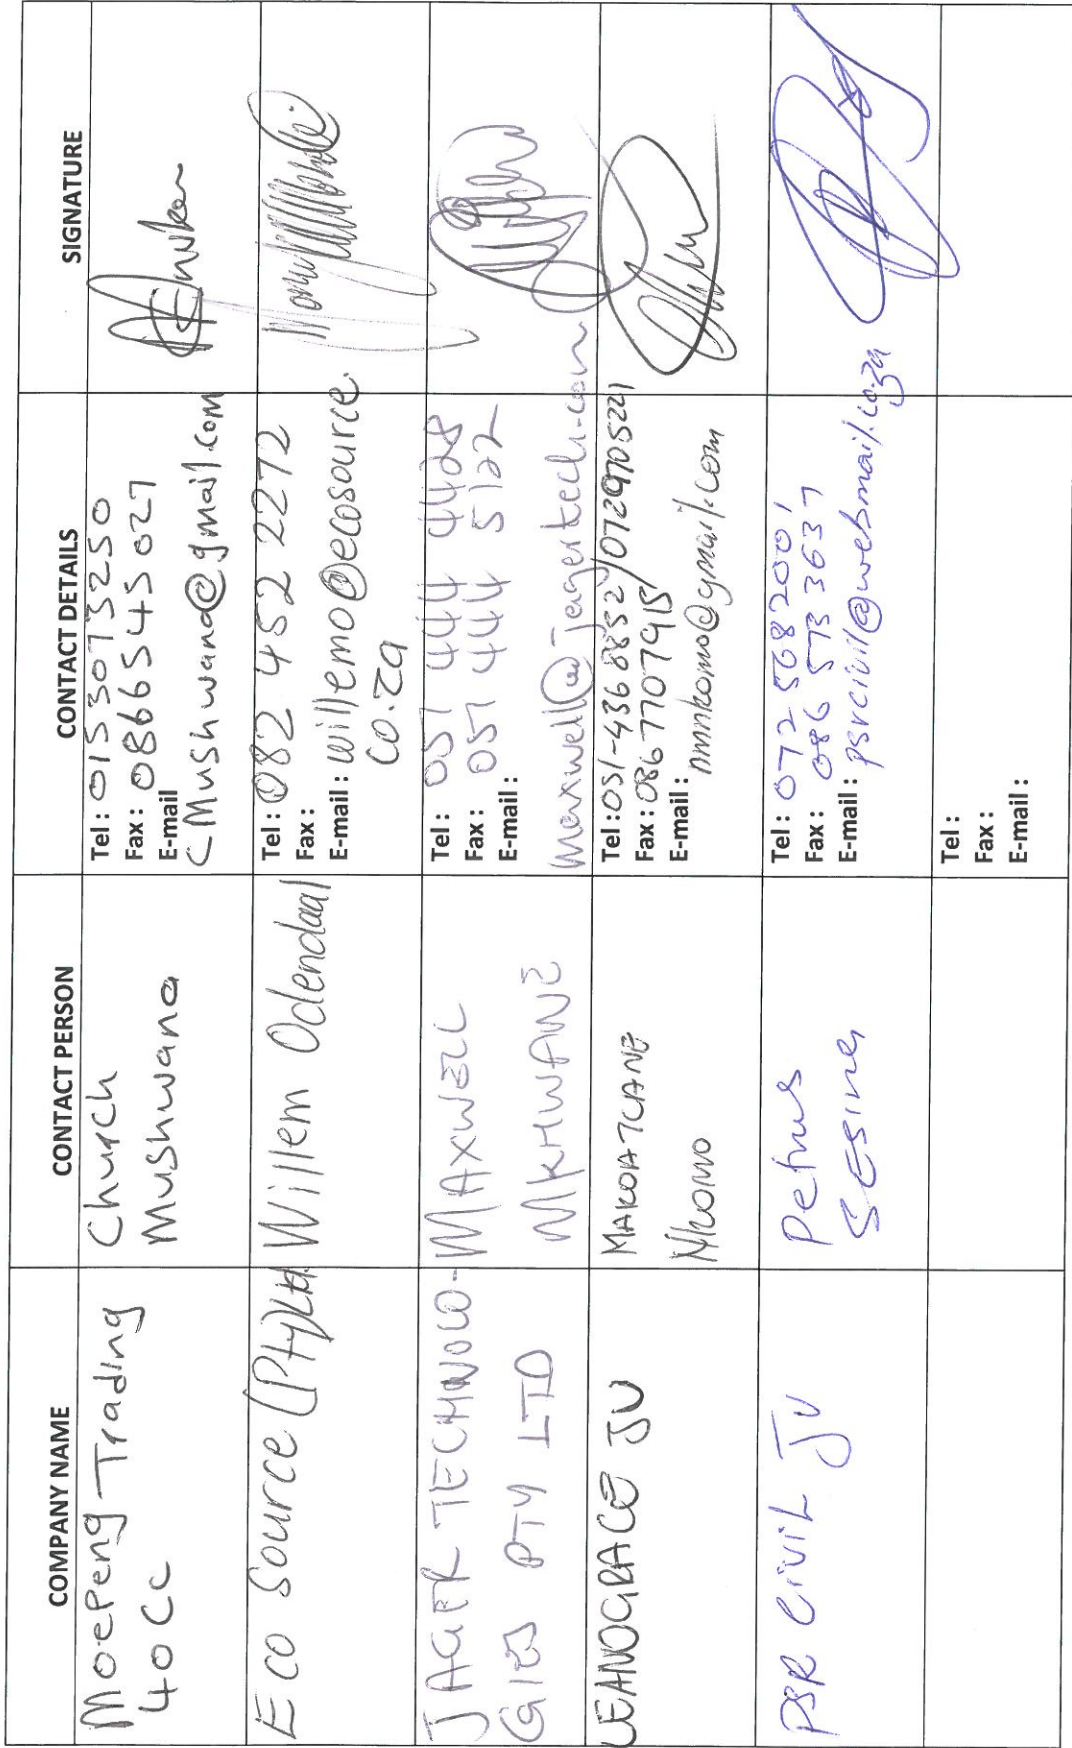 COMPANY NAME
CONTACT PERSON
CONTACT DETAILS
SIGNATURE
Moepeng Trading
40 CC
Church
Mushwana
Tel : 015 3073250
Fax : 0866545027
E-mail
CMushwana@gmail.com
Eco Source (Pty)Ltd
Willem Odendaal
Tel : 082 452 2272
Fax :
E-mail : willemo@ecosource.
co.za
JAGER TECHNOLO-
GIES PTY LTD
MAXWELL
MKHWANE
Tel : 051 444 4428
Fax : 051 444 5122
E-mail :
maxwell@jagertech.com
LEANOGRACE JV
MAKOATLANE
NKOMO
Tel : 051-436 8852/0729705221
Fax : 086 7707915
E-mail :
mnnkomo@gmail.com
PSR CIVIL JV
Petrus
Tel : 072 5682001
Fax : 086 573 3637
E-mail : psrcivil@webmail.co.za
Tel :
Fax :
E-mail :